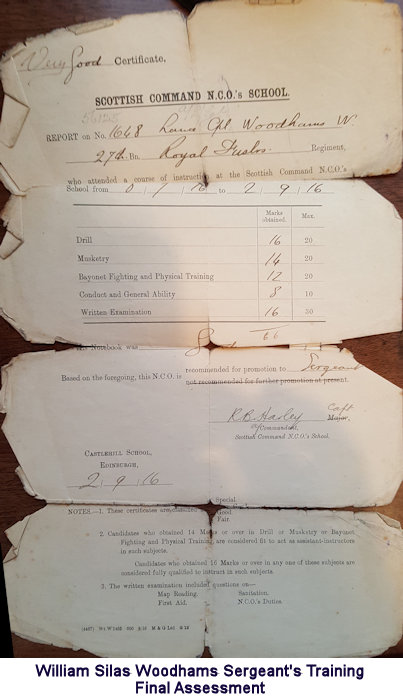 Very Good Certificate.
SCOTTISH COMMAND N.C.O.'s SCHOOL.
56128
REPORT on No. 1648 Lance Cpl Woodhams W.
27th Bn. Royal Fuslrs. Regiment,
who attended a course of instruction at the Scottish Command N.C.O.'s
School from 16 to 2 9 16
Marks obtained. Max.
Drill 16 20
Musketry 14 20
Bayonet Fighting and Physical Training 12 20
Conduct and General Ability 8 10
Written Examination 16 30
66
Notebook was
recommended for promotion to Sergeant
Based on the foregoing, this N.C.O. is
not recommended for further promotion at present.
R.B. Harley Capt
Major.
Commandant,
Scottish Command N.C.O.'s School.
CASTLEHILL SCHOOL,
EDINBURGH,
2 9 16
Special.
NOTES.—1. These certificates are classified Good.
Fair.
2. Candidates who obtained 14 Marks or over in Drill or Musketry or Bayonet
Fighting and Physical Training are considered fit to act as assistant-instructors
in such subjects.
Candidates who obtained 16 Marks or over in any one of these subjects are
considered fully qualified to instruct in such subjects.
3. The written examination included questions on—
Map Reading. Sanitation.
First Aid. N.C.O.'s Duties.
William Silas Woodhams Sergeant's Training
Final Assessment